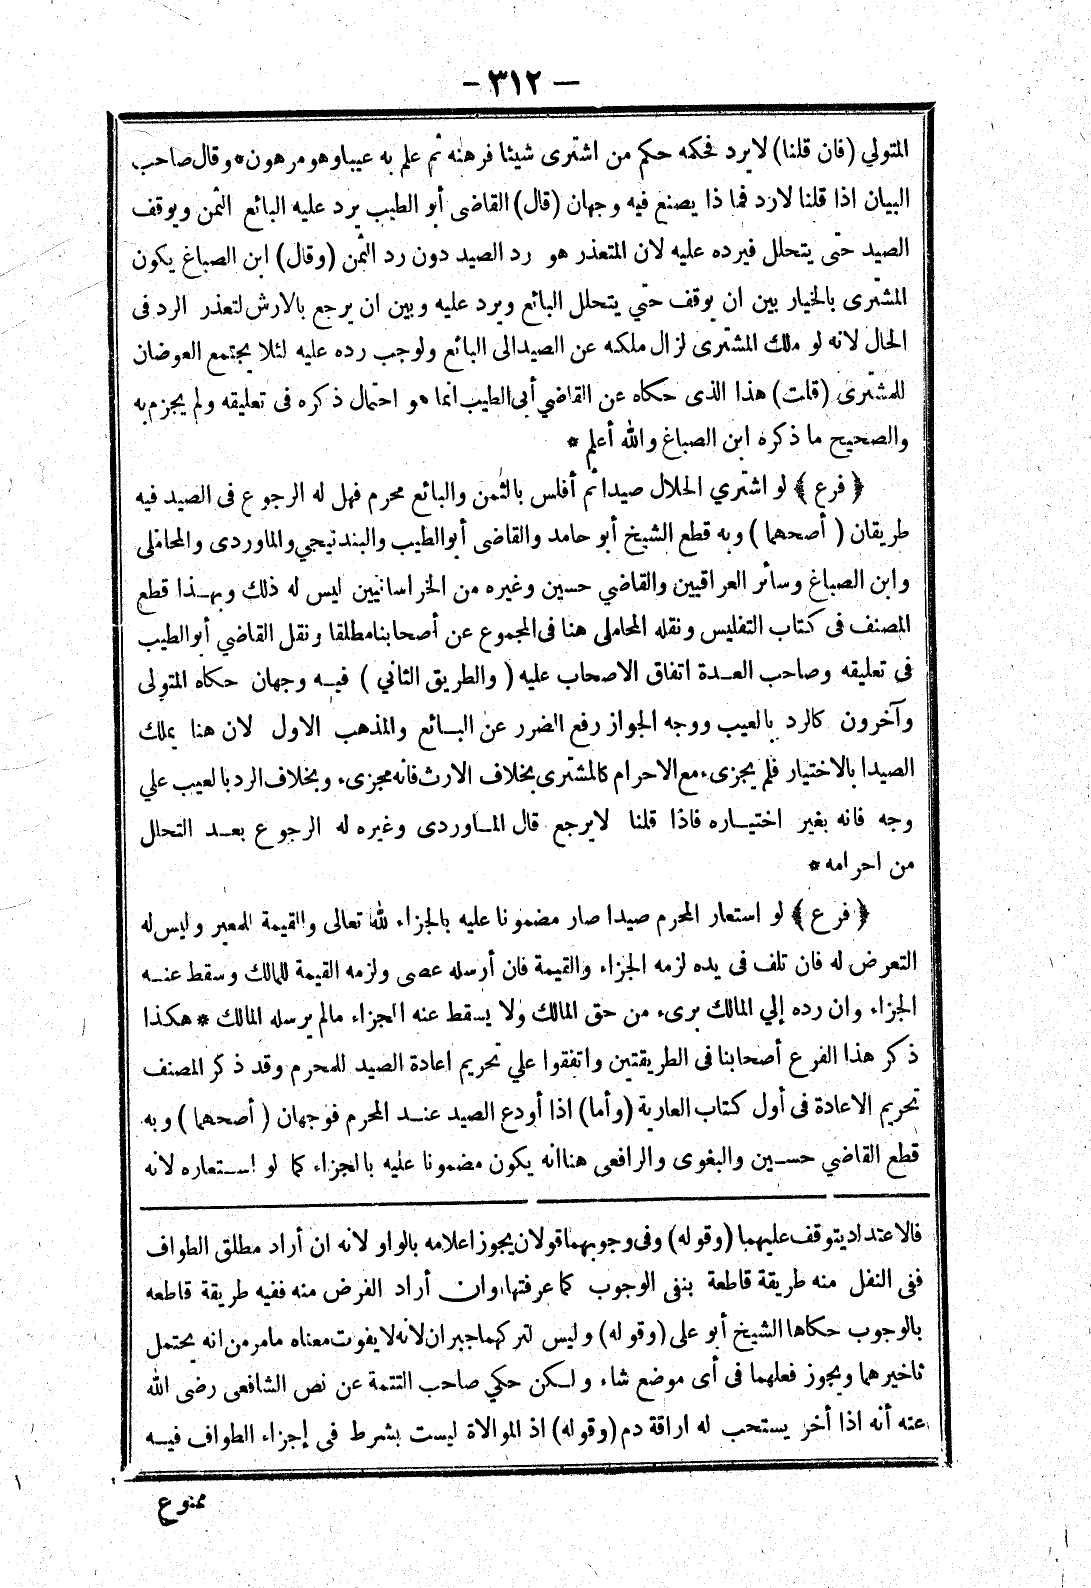 — ٣١٢ —
المتولي (فان قلنا) لايرد فحكمه حكم من اشترى شيئا فرهنه ثم علم به عيبا وهو مرهون * وقال صاحب
البيان اذا قلنا لارد فما ذا يصنع فيه وجهان (قال) القاضى أبو الطيب يرد عليه البائع الثمن ويوقف
الصيد حتى يتحلل فيرده عليه لان المتعذر هو رد الصيد دون رد الثمن (وقال) ابن الصباغ يكون
المشترى بالخيار بين ان يوقف حتي يتحلل البائع ويرد عليه وبين ان يرجع بالارش لتعذر الرد فى
الحال لانه لو ملك المشترى لزال ملكه عن الصيد الى البائع ولوجب رده عليه لئلا يجتمع العوضان
للمشترى (قلت) هذا الذى حكاه عن القاضي أبى الطيب انما هو احتمال ذكره فى تعليقه ولم يجزم به
والصحيح ما ذكره ابن الصباغ والله أعلم *
﴿ فرع ﴾ لو اشتري الحلال صيدا ثم أفلس بالثمن والبائع محرم فهل له الرجوع فى الصيد فيه
طريقان ( أصحهما ) وبه قطع الشيخ أبو حامد والقاضى أبو الطيب والبندنيجي والماوردى والمحاملى
وابن الصباغ وسائر العراقيين والقاضي حسين وغيره من الخراسانيين ليس له ذلك وبهذا قطع
المصنف فى كتاب التفليس ونقله المحاملى هنا فى المجموع عن أصحابنا مطلقا ونقل القاضي أبو الطيب
فى تعليقه وصاحب العدة اتفاق الاصحاب عليه ( والطريق الثاني ) فيه وجهان حكاه المتولى
وآخرون كالرد بالعيب ووجه الجواز رفع الضرر عن البائع والمذهب الاول لان هنا يملك
الصيدا بالاختيار فلم يجزىء مع الاحرام كالمشترى بخلاف الارث فانه مجزىء وبخلاف الرد بالعيب علي
وجه فانه بغير اختياره فاذا قلنا لايرجع قال الماوردى وغيره له الرجوع بعد التحلل
من احرامه *
﴿ فرع ﴾ لو استعار المحرم صيدا صار مضمونا عليه بالجزاء لله تعالى والقيمة للمعير وليس له
التعرض له فان تلف فى يده لزمه الجزاء والقيمة فان أرسله عصى ولزمه القيمة للمالك وسقط عنه
الجزاء وان رده إلي المالك برىء من حق المالك ولا يسقط عنه الجزاء مالم يرسله المالك * هكذا
ذكر هذا الفرع أصحابنا فى الطريقتين واتفقوا علي تحريم اعادة الصيد للمحرم وقد ذكر المصنف
تحريم الاعادة فى أول كتاب العارية (وأما) اذا أودع الصيد عند المحرم فوجهان ( أصحهما ) وبه
قطع القاضي حسين والبغوى والرافعى هنا انه يكون مضمونا عليه بالجزاء كما لو استعاره لانه
فالاعتداد يتوقف عليهما (وقوله) وفى وجوبهما قولان يجوز اعلامه بالواو لانه ان أراد مطلق الطواف
ففى النفل منه طريقة قاطعة بنفى الوجوب كما عرفتها وان أراد الفرض منه ففيه طريقة قاطعه
بالوجوب حكاها الشيخ أبو على (وقوله) وليس لتركهما جبران لانه لا يفوت معناه مامر من انه يحتمل
تاخيرهما ويجوز فعلهما فى أى موضع شاء ولكن حكي صاحب التتمة عن نص الشافعى رضى الله
عنه أنه اذا أخر يستحب له اراقة دم (وقوله) اذ الموالاة ليست بشرط فى إجزاء الطواف فيه
ممنوع